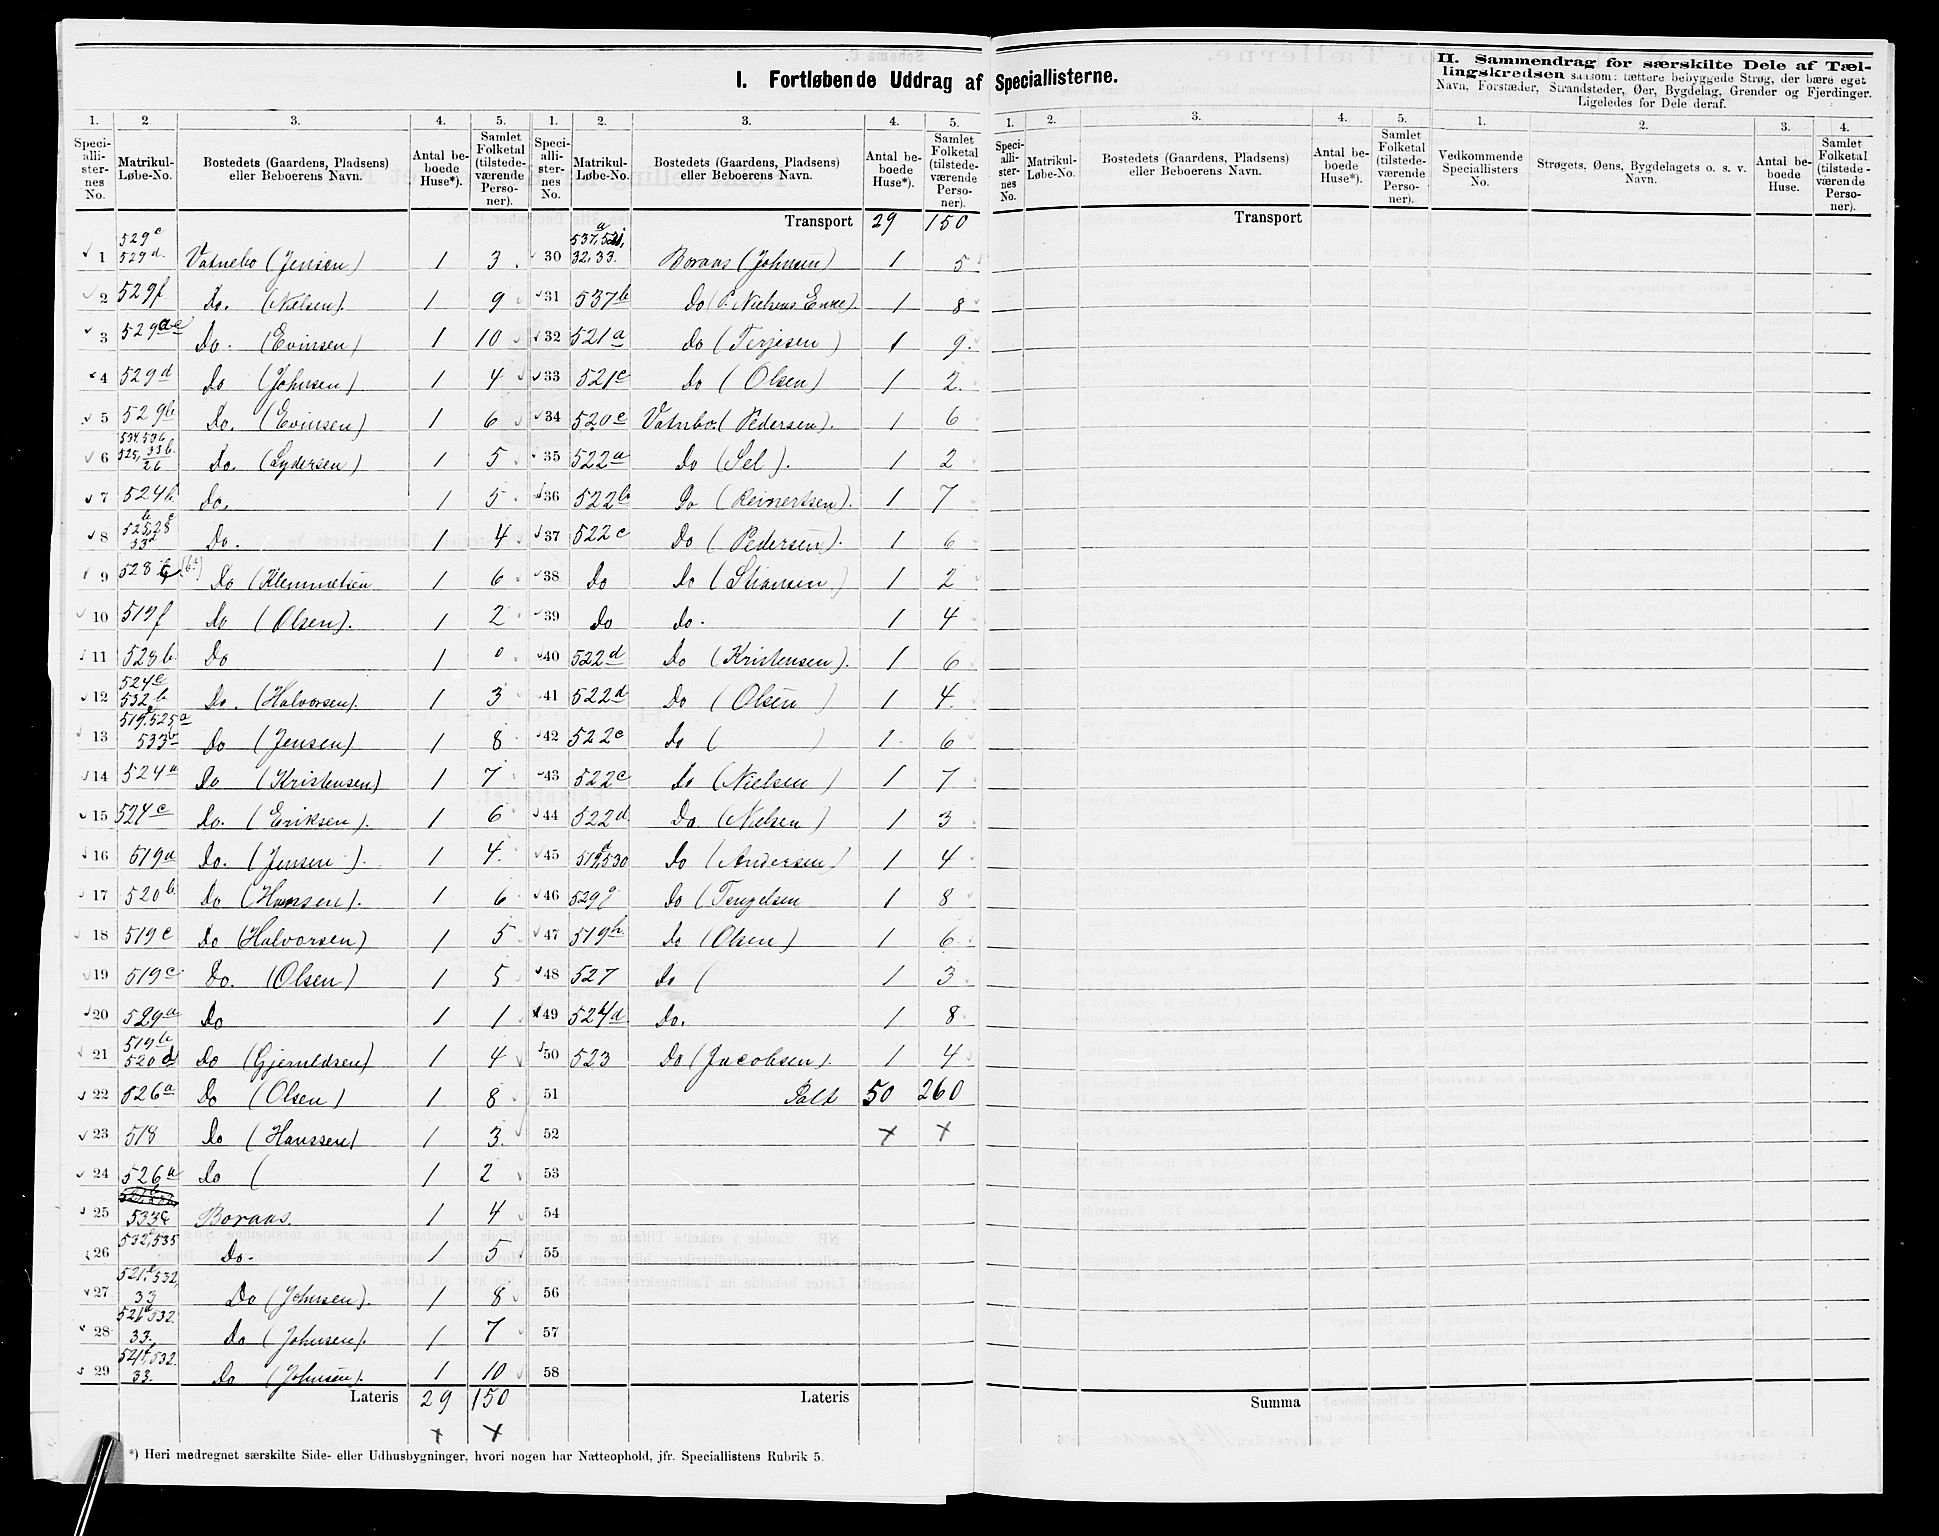 I. Fortløbende Uddrag af Speciallisterne.
II. Sammendrag for særskilte Dele af Tæl-
lingskredsen saasom: tættere bebyggede Strøg, der bære eget
Navn, Forstæder, Strandsteder, Øer, Bygdelag, Grender og Fjerdinger.
Ligeledes for Dele deraf.
1. 2. 3. 4. 5. 1. 2. 3. 4. 5. 1. 2. 3. 4. 5. 1. 2. 3. 4.
Speci-alli-ster-nes No. Matrikul-Løbe-No. Bostedets (Gaardens, Pladsens) eller Beboerens Navn. Antal be-boede Huse*). Samlet Folketal (tilstede-værende Perso-ner).
Speci-alli-ster-nes No. Matrikul-Løbe-No. Bostedets (Gaardens, Pladsens) eller Beboerens Navn. Antal be-boede Huse*). Samlet Folketal (tilstede-værende Perso-ner).
Speci-alli-ster-nes No. Matrikul-Løbe-No. Bostedets (Gaardens, Pladsens) eller Beboerens Navn. Antal be-boede Huse*). Samlet Folketal (tilstede-værende Perso-ner).
Vedkommende Speciallisters No. Strøgets, Øens, Bygdelagets o. s. v. Navn. Antal be-boede Huse. Samlet Folketal (tilstede-værende Perso-ner).
1 529c 529d. Vatnebo (Jensen) 1 3.
2 529f Do. (Nielsen). 1 9
3 529ae Do. (Evinsen) 1 10
4 529d Do (Johnsen) 1 4
5 529b Do. (Evinsen) 1 6
6 534, 536 525, 33b. 26 Do. (Lydersen) 1 5
7 524b Do. 1 5
8 525b, 28c 33d Do. 1 4
9 528 Do (Klemmetsen 1 6
10 519f Do (Olsen). 1 2
11 528b. Do 1 0
12 524e 532b Do. (Halvorsen). 1 3
13 519, 525a 533b Do (Jensen) 1 8
14 524a Do (Kristensen) 1 7
15 524c Do. (Eriksen). 1 6
16 519a Do. (Jensen). 1 4.
17 520b. Do (Hansen). 1 6
18 519e Do (Halvorsen) 1 5
19 519c Do. (Olsen) 1 5
20 529a Do 1 1
21 519b 520d Do (Gjeruldsen) 1 4
22 526a Do (Olsen) 1 8
23 518 Do (Hanssen) 1 3.
24 526a Do ( 1 2
25 533c Boraas. 1 4
26 532, 535 Do. 1 5
27 521, 532, 33 Do (Johnsen). 1 8
28 521d 532. 33. Do (Johnsen). 1 7
29 521, 532. 33. Do (Johnsen). 1 10
Lateris 29 150
Transport 29 150
30 537a, 521, 32, 33. Boraas (Johnsen) 1 5
31 537b Do (P. Nielsens Enke). 1 8
32 521a Do (Terjesen) 1 9.
33 521c Do (Olsen) 1 2.
34 520c Vatnebo. (Pedersen). 1 6
35 522a Do (Sel). 1 2
36 522b Do (Reinertsen). 1 7
37 522c Do (Pedersen). 1 6
38 Do Do (Stiansen) 1 2
39 Do Do. 1 4
40 522d Do (Kristensen). 1 6
41 522d Do (Olsen) 1 4.
42 522c Do ( ) 1 6
43 522c Do (Nielsen) 1 7
44 522d Do (Nielsen) 1 3
45 519, 530 Do (Andersen) 1 4
46 529g Do (Tengelsen 1 8
47 519h Do (Olsen) 1 6
48 527 Do ( 1 3
49 524d Do. 1 8
50 523 Do (Jacobsen). 1 4
51 Ialt 50 260
52
53
54
55
56
57
58
Lateris
Transport
Summa
*) Heri medregnet særskilte Side- eller Udhusbygninger, hvori nogen har Natteophold, jfr. Speciallistens Rubrik 5.